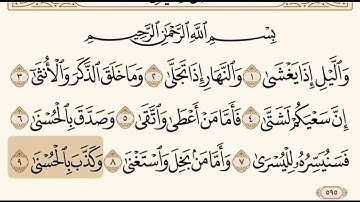 بِسْمِ اللَّهِ الرَّحْمَٰنِ الرَّحِيمِ
وَاللَّيْلِ إِذَا يَغْشَىٰ ١ وَالنَّهَارِ إِذَا تَجَلَّىٰ ٢ وَمَا خَلَقَ الذَّكَرَ وَالْأُنثَىٰ ٣
إِنَّ سَعْيَكُمْ لَشَتَّىٰ ٤ فَأَمَّا مَنْ أَعْطَىٰ وَاتَّقَىٰ ٥ وَصَدَّقَ بِالْحُسْنَىٰ ٦
فَسَنُيَسِّرُهُ لِلْيُسْرَىٰ ٧ وَأَمَّا مَن بَخِلَ وَاسْتَغْنَىٰ ٨ وَكَذَّبَ بِالْحُسْنَىٰ ٩
٥٩٥